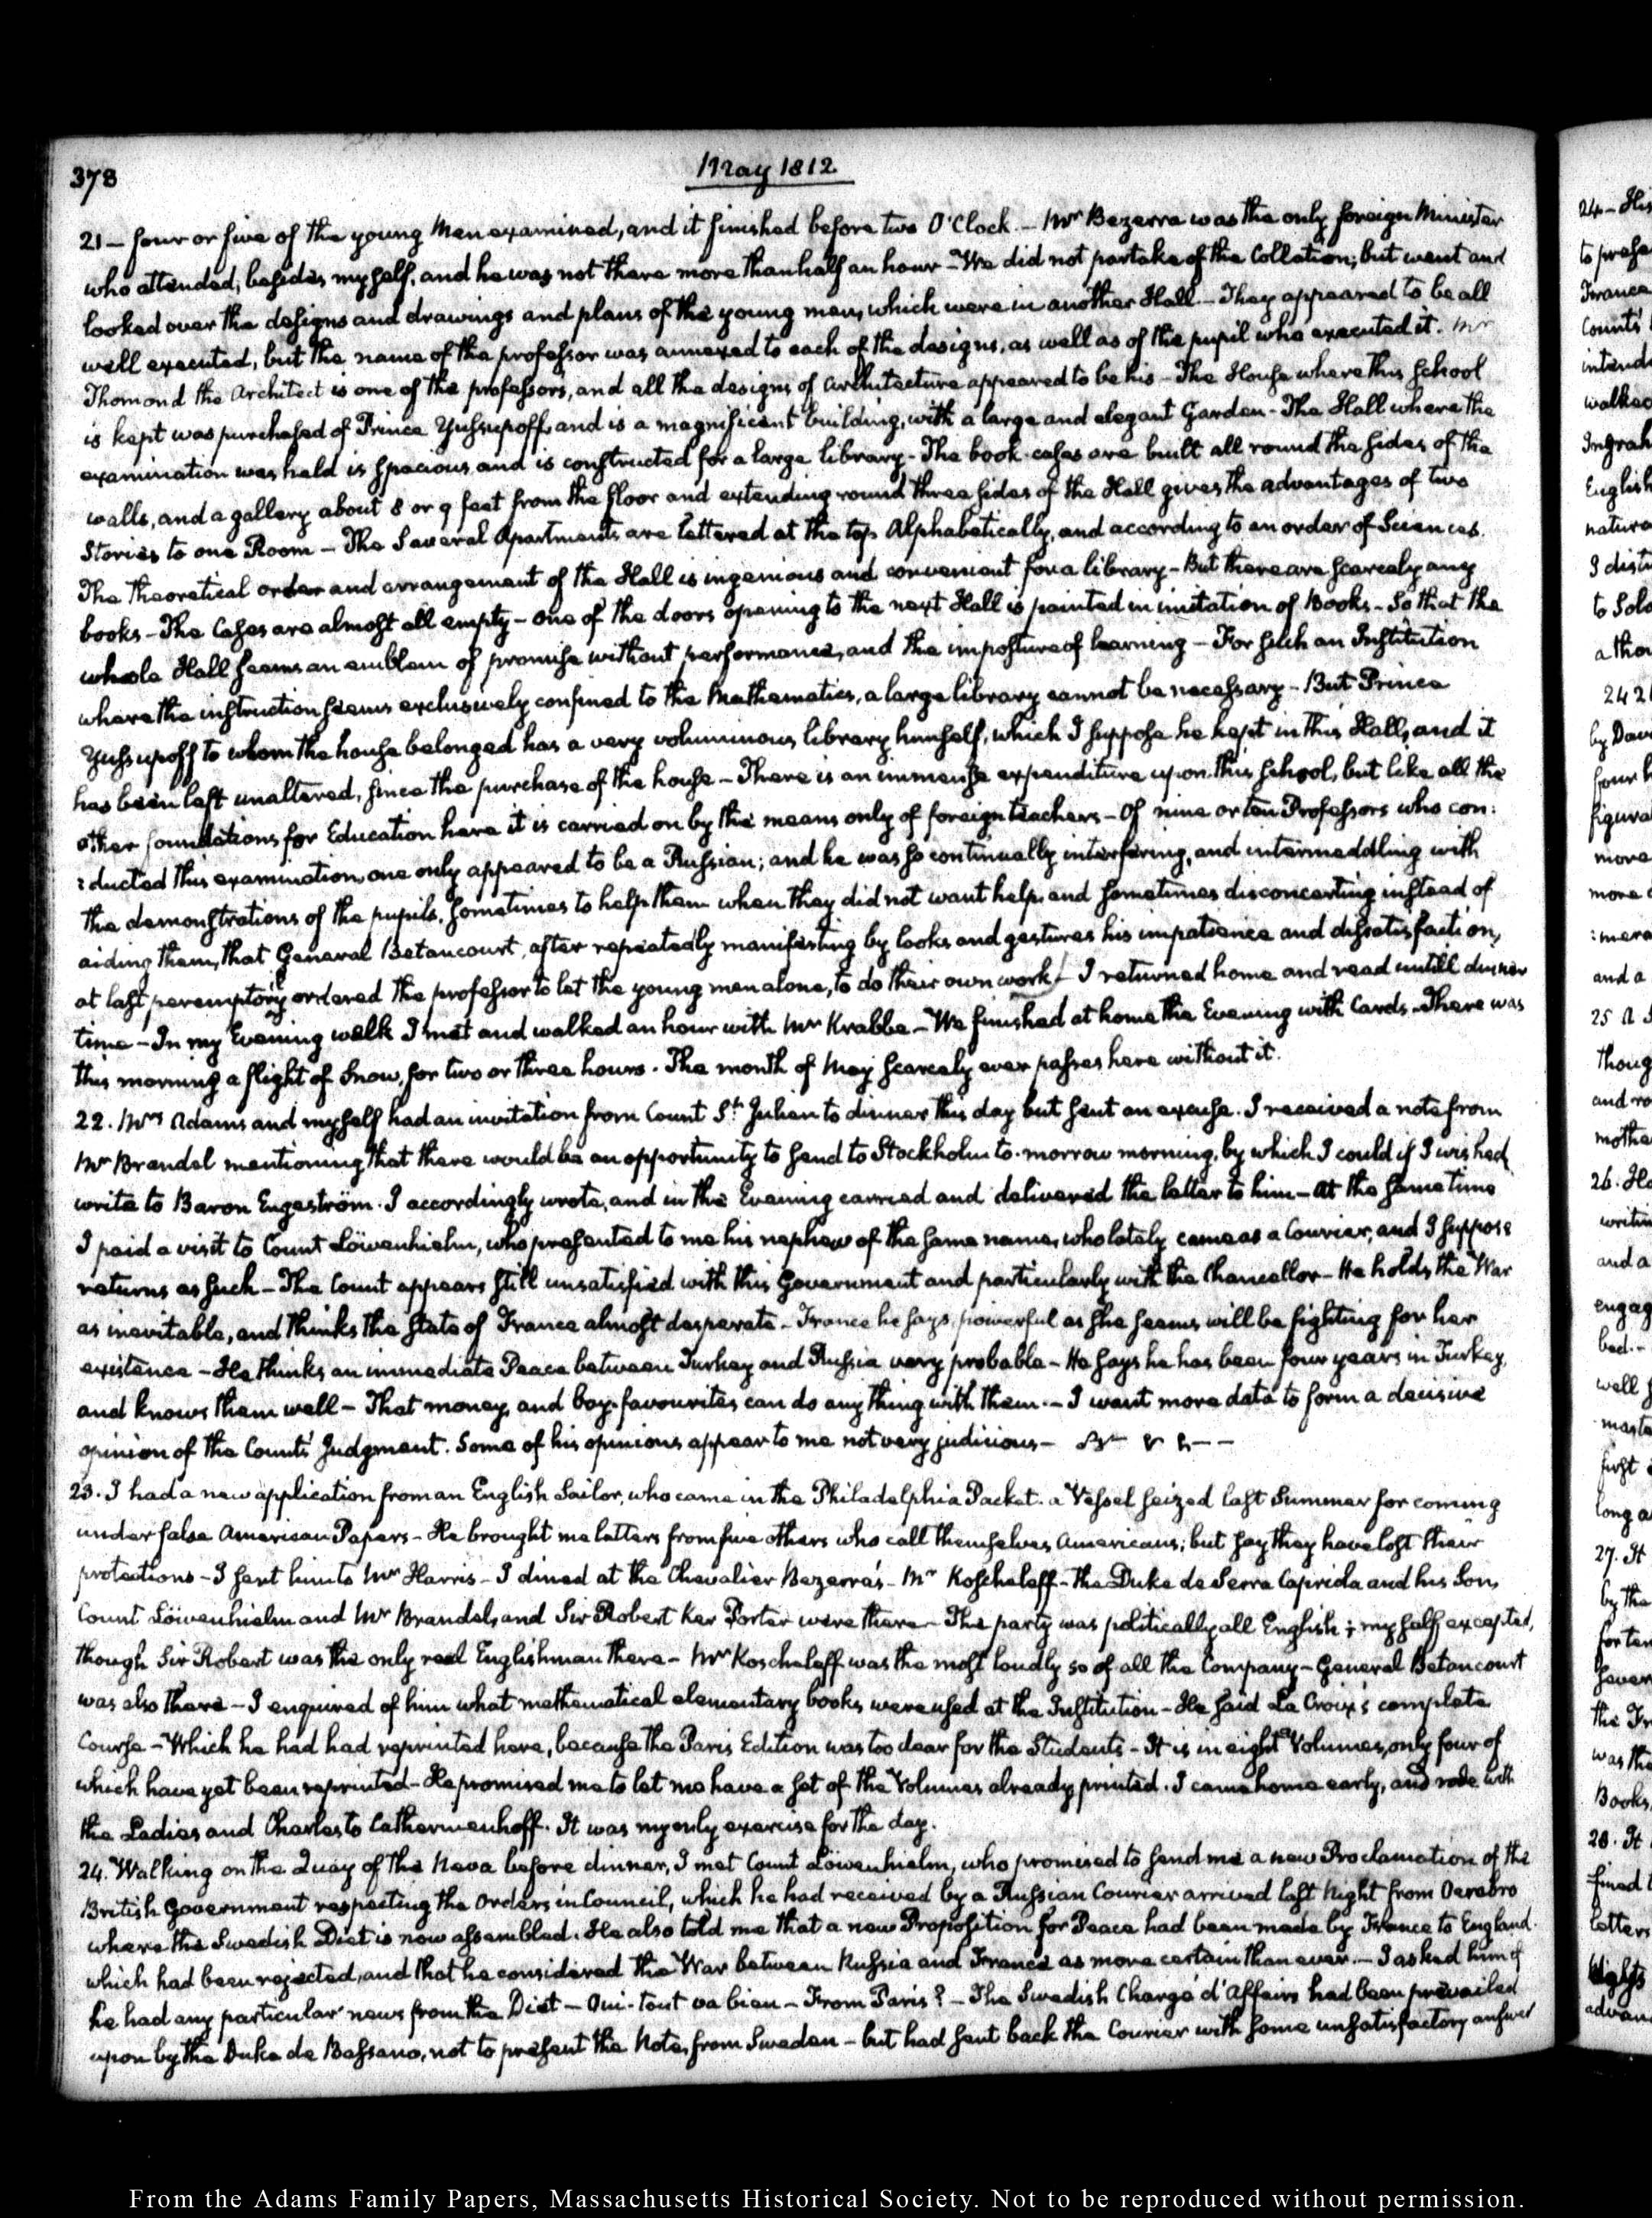 378
May 1812
21 — four or five of the young Men examined, and it finished before two O'Clock. — Mr Bezerra was the only foreign Minister
who attended, besides myself, and he was not there more than half an hour — We did not partake of the Collation; but went and
looked over the designs and drawings and plans of the young men, which were in another Hall. — They appeared to be all
well executed, but the name of the professor was annexed to each of the designs, as well as of the pupil who executed it. Mr
Thomond the Architect is one of the professors, and all the designs of architecture appeared to be his — The House where this School
is kept was purchased of Prince Yussupoff, and is a magnificent building, with a large and elegant Garden — The Hall where the
examination was held is spacious, and is constructed for a large library — The book-cases are built all round the sides of the
walls, and a gallery about 8 or 9 feet from the floor and extending round three sides of the Hall gives the advantages of two
Stories to one Room — The Several Apartments are lettered at the top Alphabetically, and according to an order of Sciences.
The theoretical order and arrangement of the Hall is ingenious and convenient for a library — But there are scarcely any
books — The Cases are almost all empty — one of the doors opening to the next Hall is painted in imitation of Books — So that the
whole Hall seems an emblem of promise without performance, and the imposture of learning — For such an Institution
where the instruction seems exclusively confined to the Mathematics, a large library cannot be necessary — But Prince
Yussupoff to whom the house belonged has a very voluminous library himself, which I suppose he kept in this Hall, and it
has been left unaltered, since the purchase of the house — There is an immense expenditure upon this school, but like all the
other foundations for Education here it is carried on by the means only of foreign teachers — Of nine or ten Professors who con:
:ducted this examination, one only appeared to be a Russian; and he was so continually interfering, and intermeddling with
the demonstrations of the pupils, sometimes to help them when they did not want help, and sometimes disconcerting instead of
aiding them, that General Betancourt, after repeatedly manifesting by looks and gestures his impatience and dissatisfaction,
at last peremptorily ordered the professor to let the young men alone, to do their own work — I returned home and read untill dinner
time — In my Evening walk I met and walked an hour with Mr Krabbe — We finished at home the Evening with Cards. There was
this morning a flight of Snow, for two or three hours. The month of May scarcely ever passes here without it.
22. Mrs Adams and myself had an invitation from Count St Julien to dinner this day but sent an excuse. I received a note from
Mr Brandel mentioning that there would be an opportunity to send to Stockholm to-morrow morning, by which I could if I wished
write to Baron Engeström. I accordingly wrote, and in the Evening carried and delivered the letter to him — At the same time
I paid a visit to Count Löwenhielm, who presented to me his nephew of the same name, who lately came as a Courier, and I suppose
returns as such — The Count appears still unsatisfied with this Government and particularly with the Chancellor — He holds the War
as inevitable, and thinks the State of France almost desperate — France he says, powerful as she seems, will be fighting for her
existence — He thinks an immediate Peace between Turkey and Russia very probable — He says he has been four years in Turkey,
and knows them well — That money, and boy-favourites can do any thing with them. — I want more data to form a decisive
opinion of the Counts' Judgment. Some of his opinions appear to me not very judicious —
23. I had a new application from an English Sailor, who came in the Philadelphia Packet. a Vessel seized last Summer for coming
under false American Papers — He brought me letters from five others who call themselves Americans; but say they have lost their
protections — I sent him to Mr Harris — I dined at the Chevalier Bezerra's — Mr Koscheleff — the Duke de Serra Capriola and his Son,
Count Löwenhielm and Mr Brandel, and Sir Robert Ker Porter were there — The party was politically all English; myself excepted,
though Sir Robert was the only real Englishman there — Mr Koscheleff was the most loudly so of all the Company — General Betancourt
was also there — I enquired of him what mathematical elementary books were used at the Institution — He said La Croix's complete
Course — Which he had had reprinted here, because the Paris Edition was too dear for the Students — It is in eight Volumes, only four of
which have yet been reprinted — He promised me to let me have a set of the Volumes already printed. I came home early, and rode with
the Ladies and Charles to Catherinenhoff. It was my only exercise for the day.
24. Walking on the Quay of the Neva before dinner, I met Count Löwenhielm, who promised to send me a new Proclamation of the
British Government respecting the Orders in Council, which he had received by a Russian Courier arrived last Night from Oerebro
where the Swedish Diet is now assembled. He also told me that a new Proposition for Peace had been made by France to England.
which had been rejected, and that he considered the War between Russia and France as more certain than ever. — I asked him if
he had any particular news from the Diet — Oui. tout va bien — From Paris? — The Swedish Chargé d'Affairs had been prevailed
upon by the Duke de Bassano, not to present the Note, from Sweden — but had sent back the Courier with some unsatisfactory answer
From the Adams Family Papers, Massachusetts Historical Society. Not to be reproduced without permission.